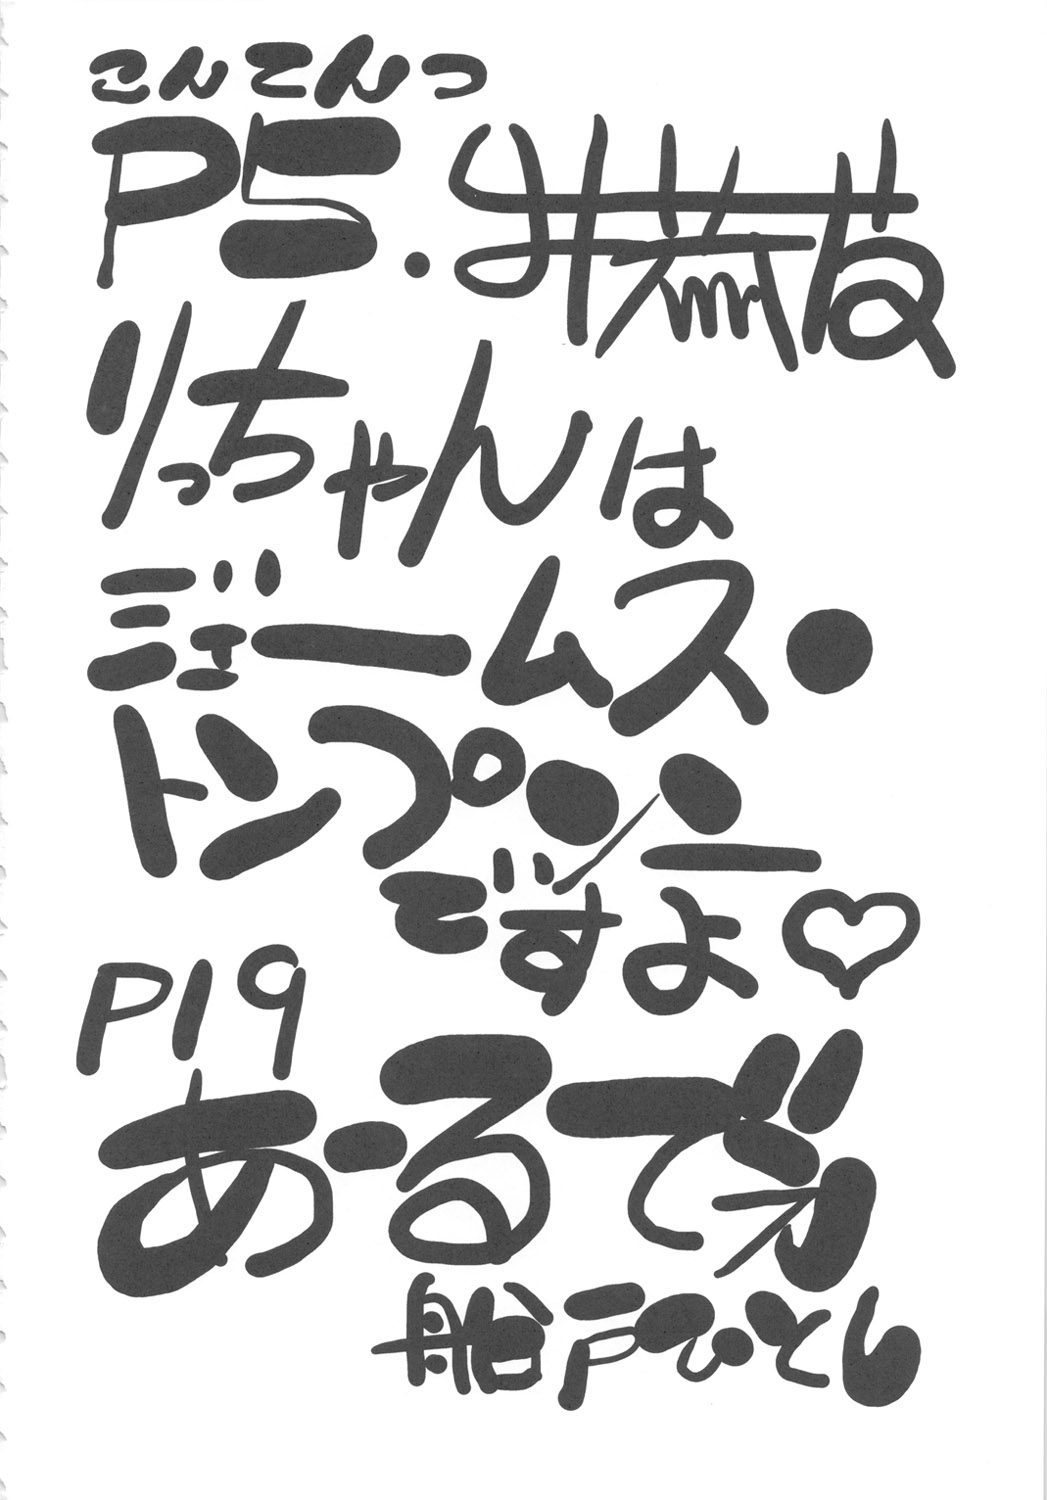 こんてんつ
P5.
りっちゃんは
ジェームス・
トンプソン
ですよ♡
P19
あーるでえ
船戸ひとし